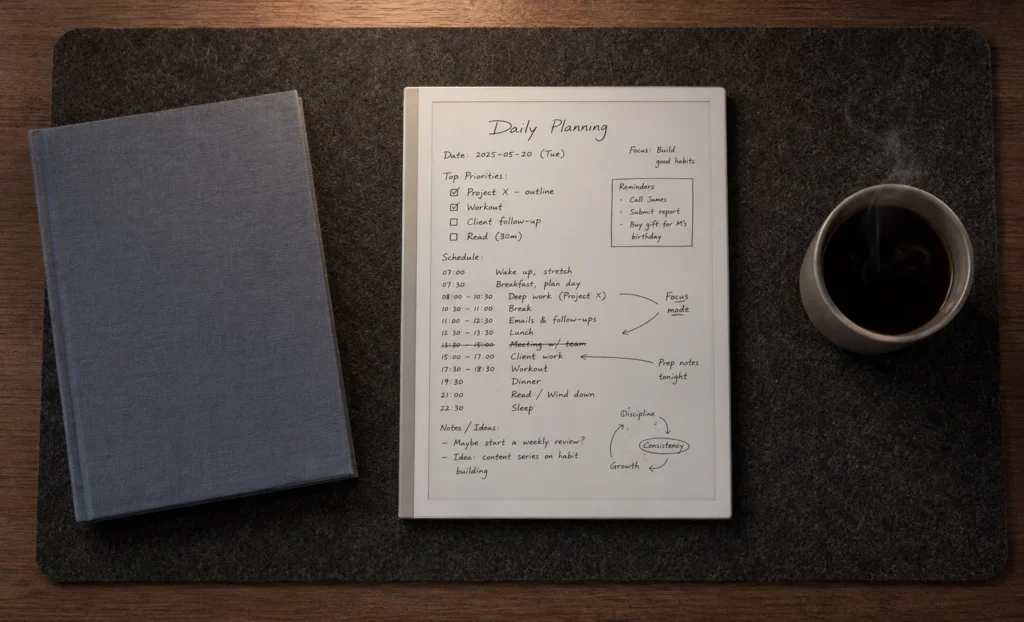 Daily Planning
Date: 2025-05-20 (Tue)
Focus: Build
good habits
Top Priorities:
☑ Project X – outline
☑ Workout
☐ Client follow-up
☐ Read (30m)
Reminders
- Call James
- Submit report
- Buy gift for M's
birthday
Schedule:
07:00 Wake up, stretch
07:30 Breakfast, plan day
08:00 – 10:30 Deep work (Project X)
10:30 – 11:00 Break
11:00 – 12:30 Emails & follow-ups
12:30 – 13:30 Lunch
13:30 – 15:00 Meeting w/ team
15:00 – 17:00 Client work
17:30 – 18:30 Workout
19:30 Dinner
21:00 Read / Wind down
22:30 Sleep
Focus
mode
Prep notes
tonight
Notes / Ideas:
– Maybe start a weekly review?
– Idea: content series on habit
building
Discipline
Consistency
Growth